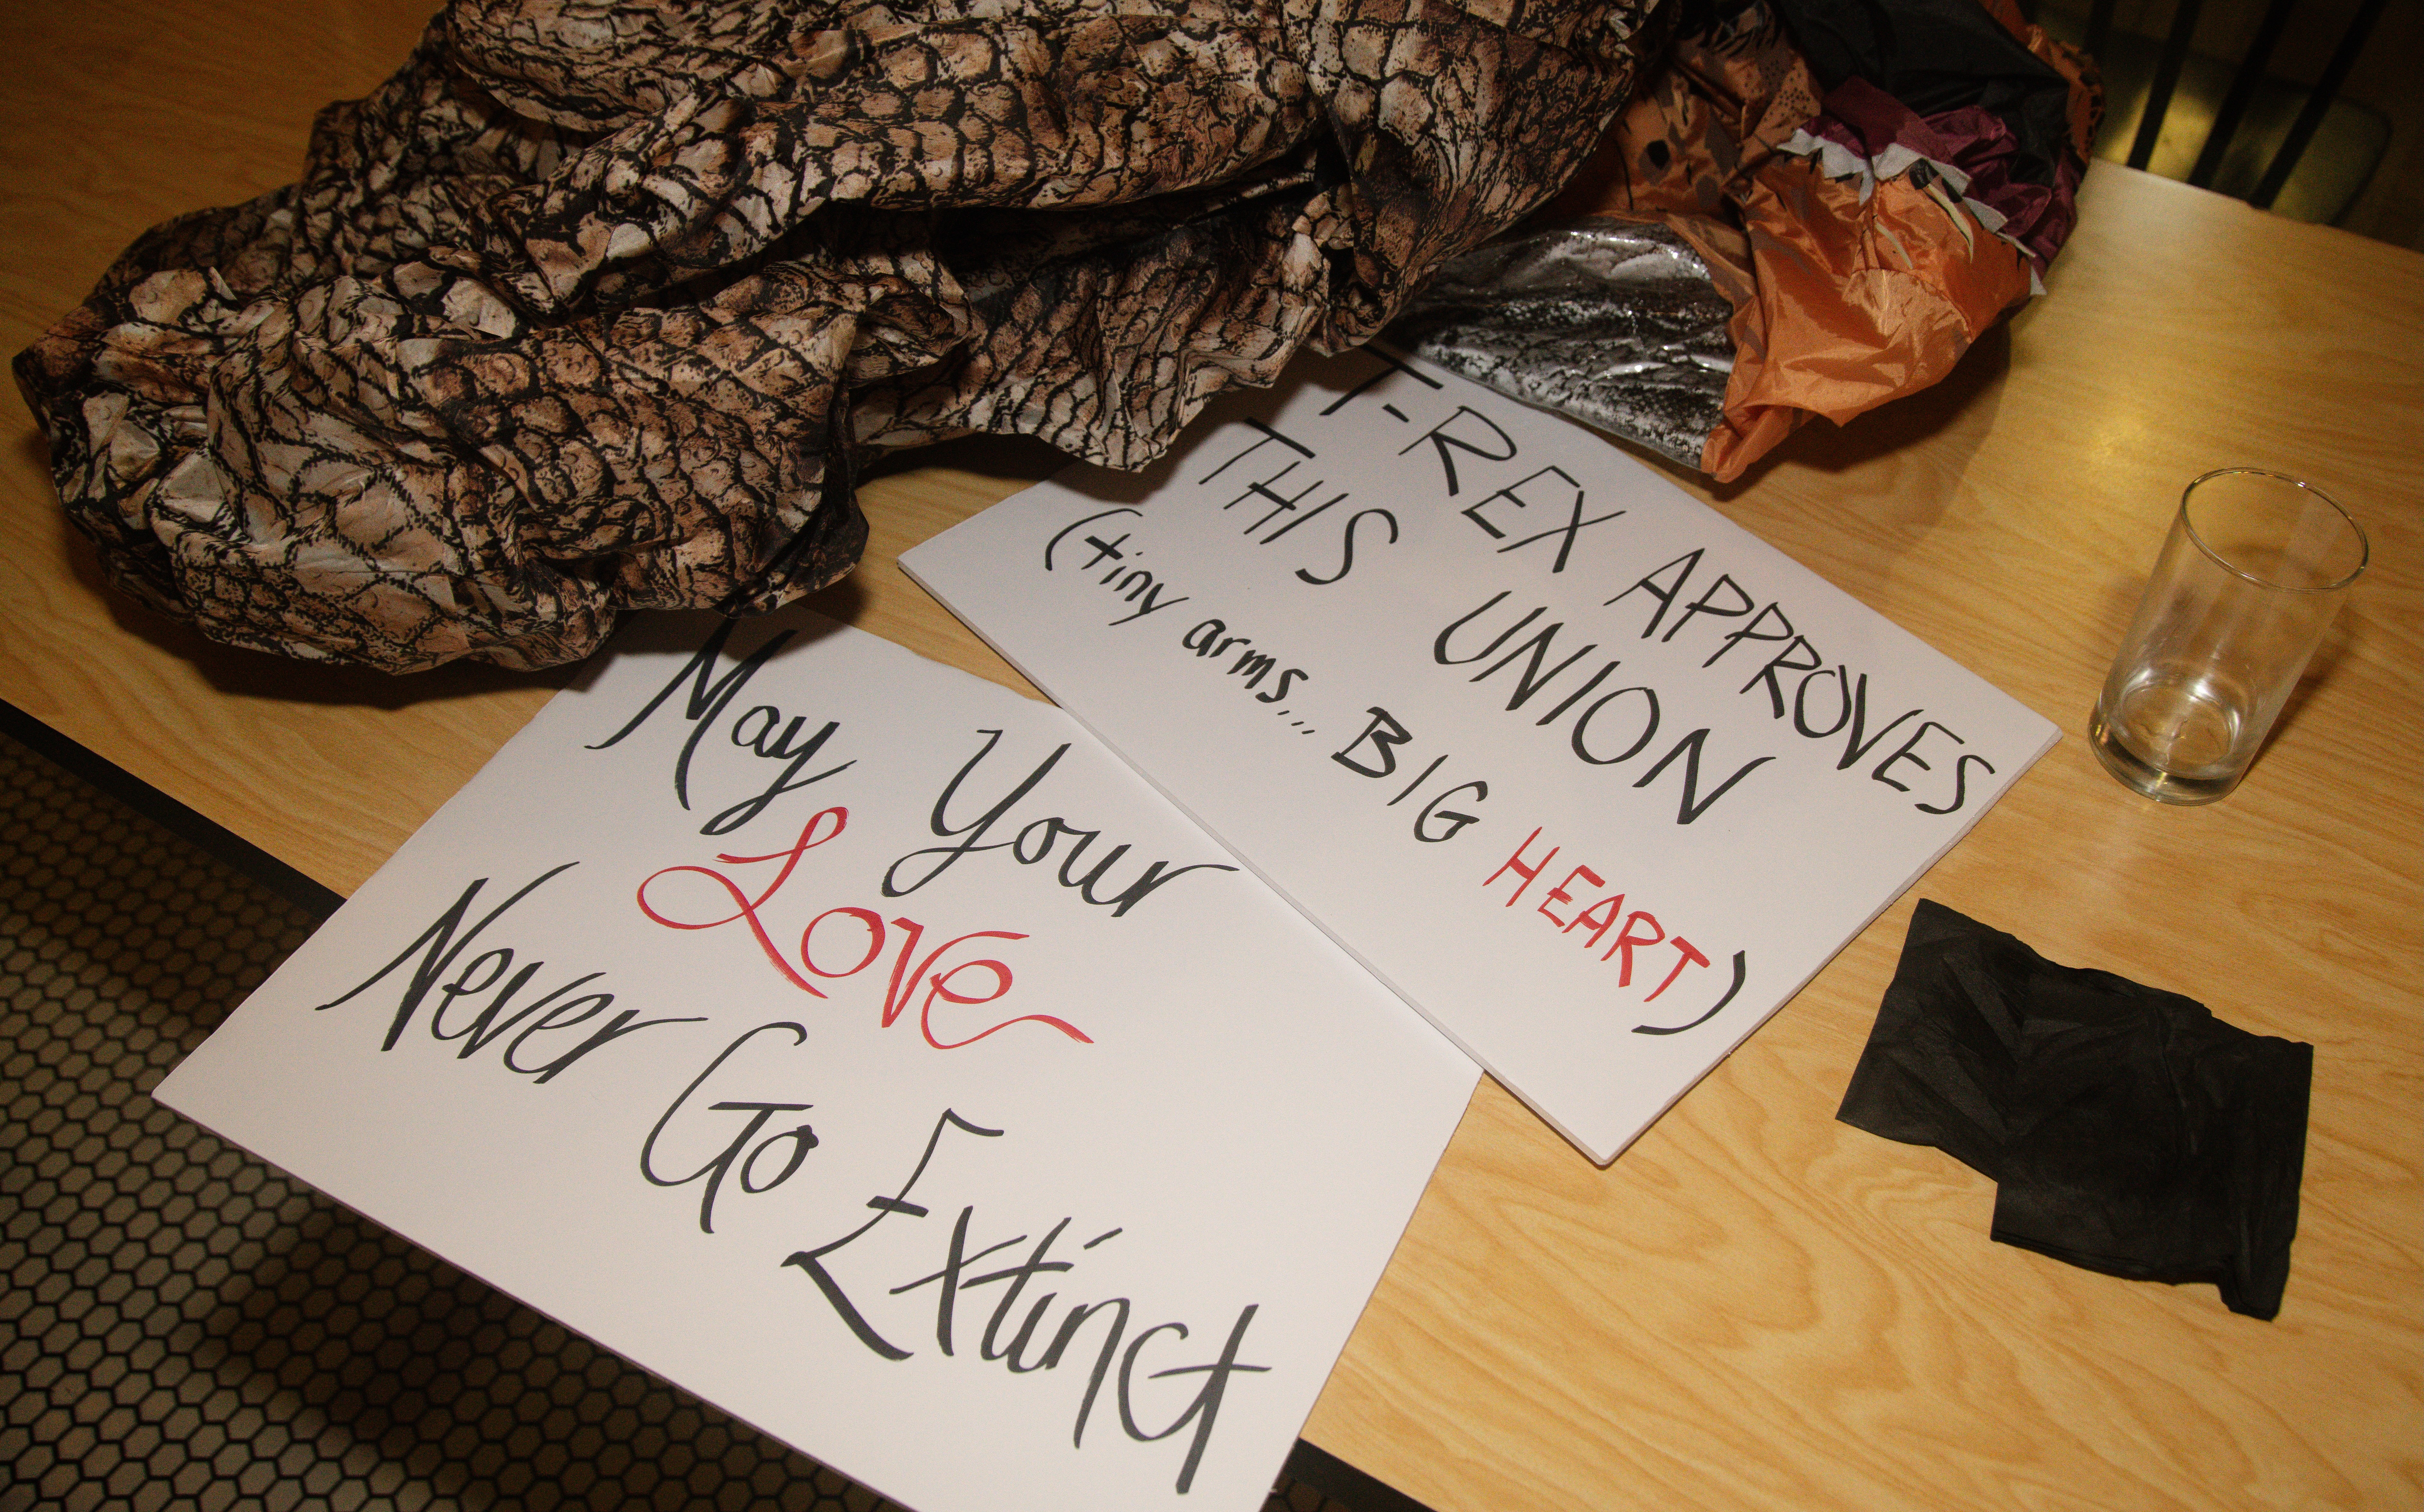 T-REX APPROVES
THIS UNION
(tiny arms... BIG HEART)
May Your
Love
Never Go Extinct